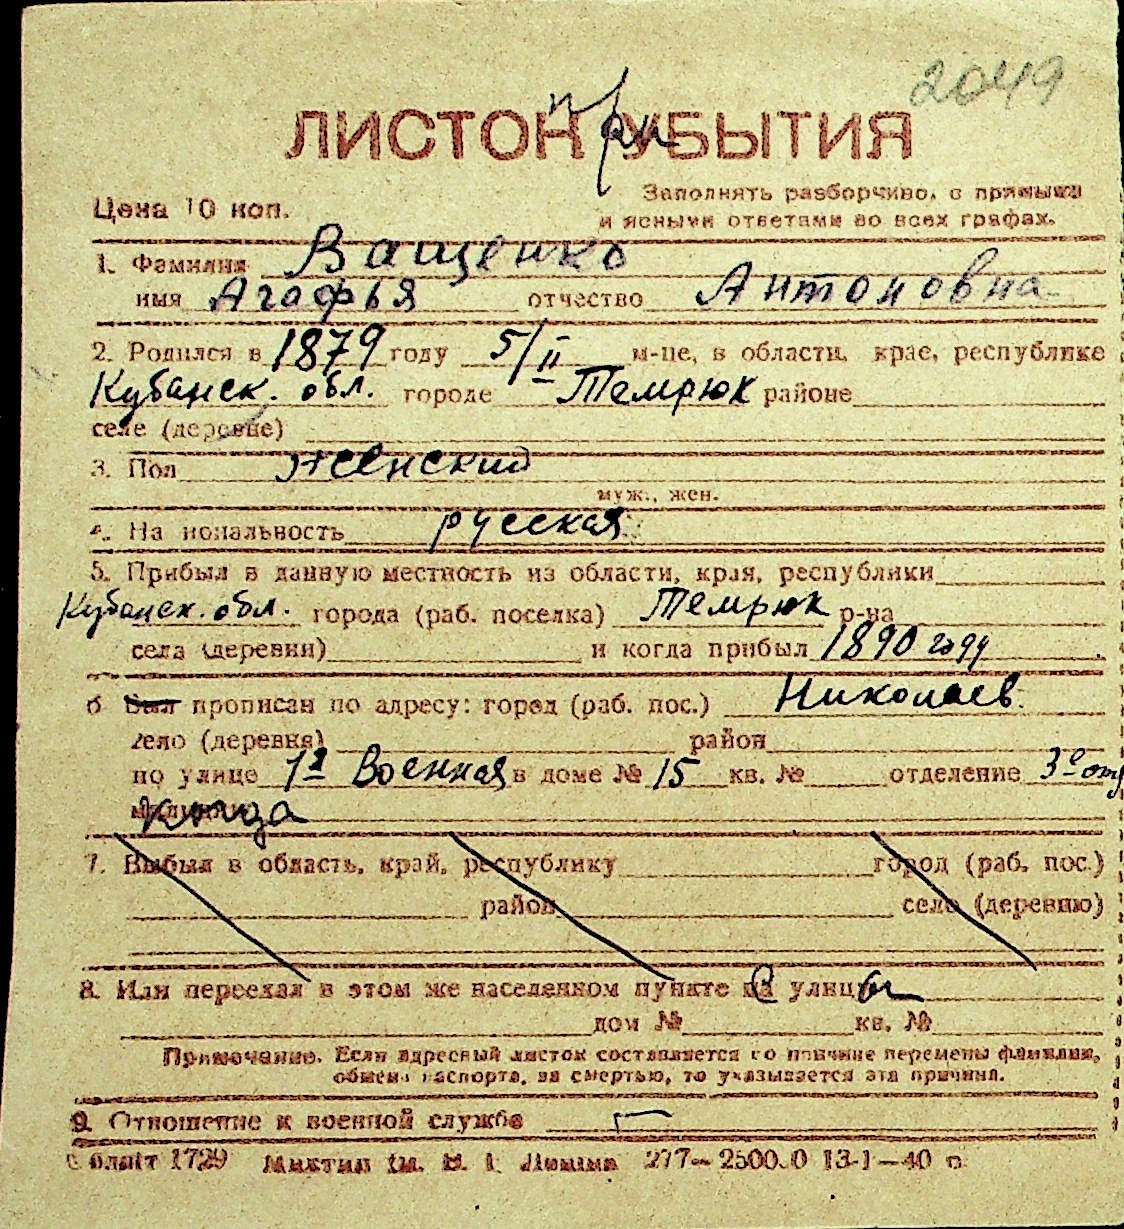 2049
ЛИСТОК при УБЫТИЯ
Цена 10 коп.
Заполнять разборчиво, с прямыми
и ясными ответами во всех графах.
1. Фамилия Ващенко
имя Агафья отчество Антоновна
2. Родился в 1879 году 5/II м-це, в области, крае, республике
Кубанск. обл. городе Темрюк районе
селе (деревне)
3. Пол женский
муж., жен.
4. На иональность русская
5. Прибыл в данную местность из области, края, республики
Кубанск. обл. города (раб. поселка) Темрюк р-на
села (деревни) и когда прибыл 1890 году
6 Был прописан по адресу: город (раб. пос.) Николаев.
село (деревня) район
по улице 1я Военная в доме № 15 кв. № отделение 3о
7. Выбыл в область, край, республику город (раб. пос.)
район село (деревню)
8. Или переехал в этом же населенном пункте с улицы
дом № кв. №
Примечание. Если адресный листок составляется по причине перемены фамилии,
обмена паспорта, за смертью, то указывается эта причина.
9. Отношение к военной службе
Облліт 1729 277— 2500.0 13-1—40 р.